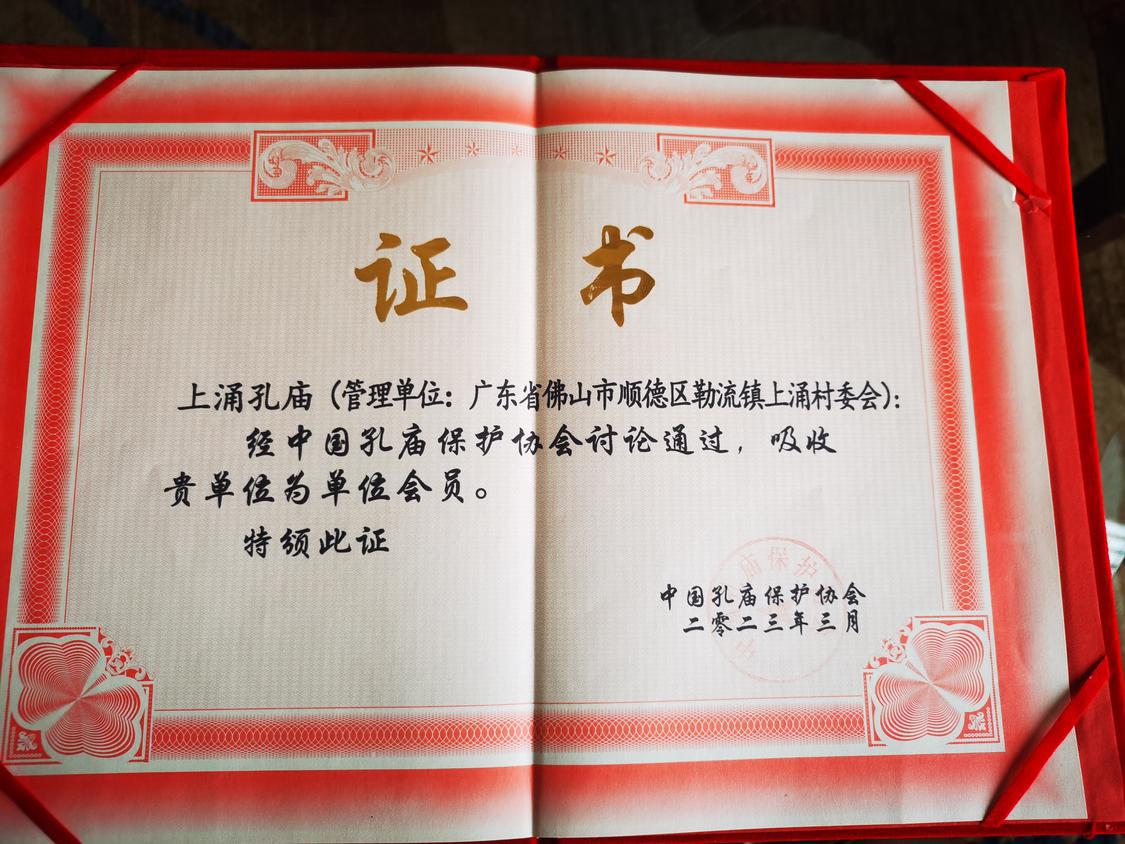 证 书
上涌孔庙（管理单位：广东省佛山市顺德区勒流镇上涌村委会）：
经中国孔庙保护协会讨论通过，吸收
贵单位为单位会员。
特颁此证
中国孔庙保护协会
二零二三年三月